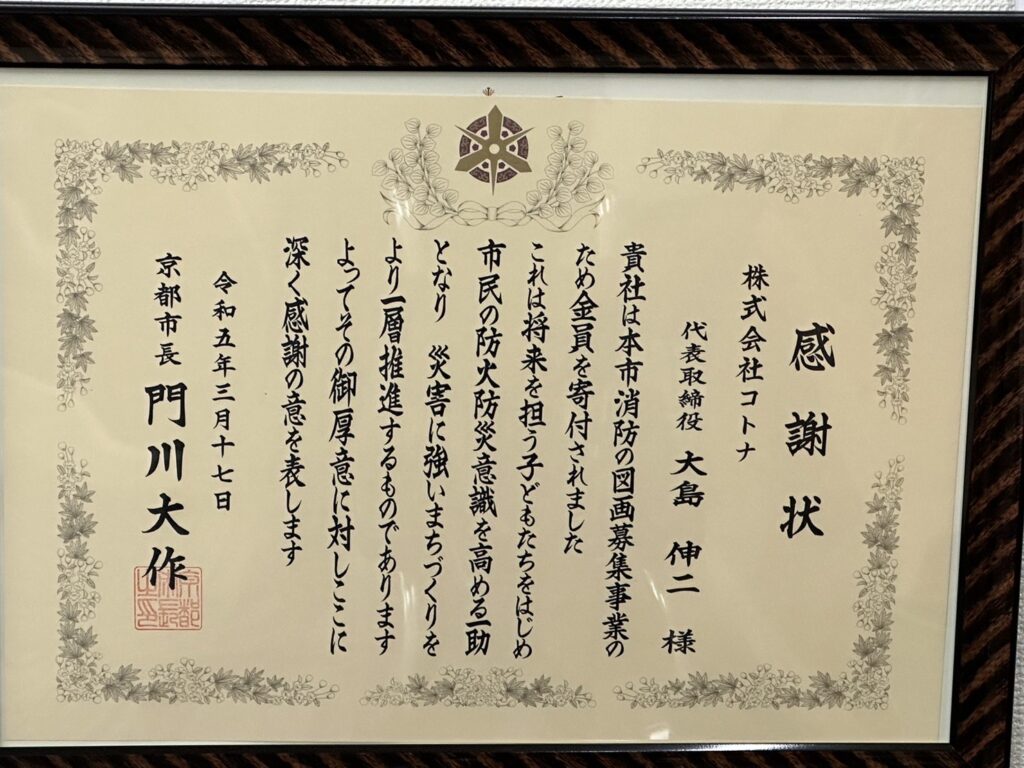 感謝状
株式会社コトナ
代表取締役 大島 伸二 様
貴社は本市消防の図画募集事業の
ため金員を寄付されました
これは将来を担う子どもたちをはじめ
市民の防火防災意識を高める一助
となり 災害に強いまちづくりを
より一層推進するものであります
よってその御厚意に対しここに
深く感謝の意を表します
令和五年三月十七日
京都市長 門川大作
京都市長之印